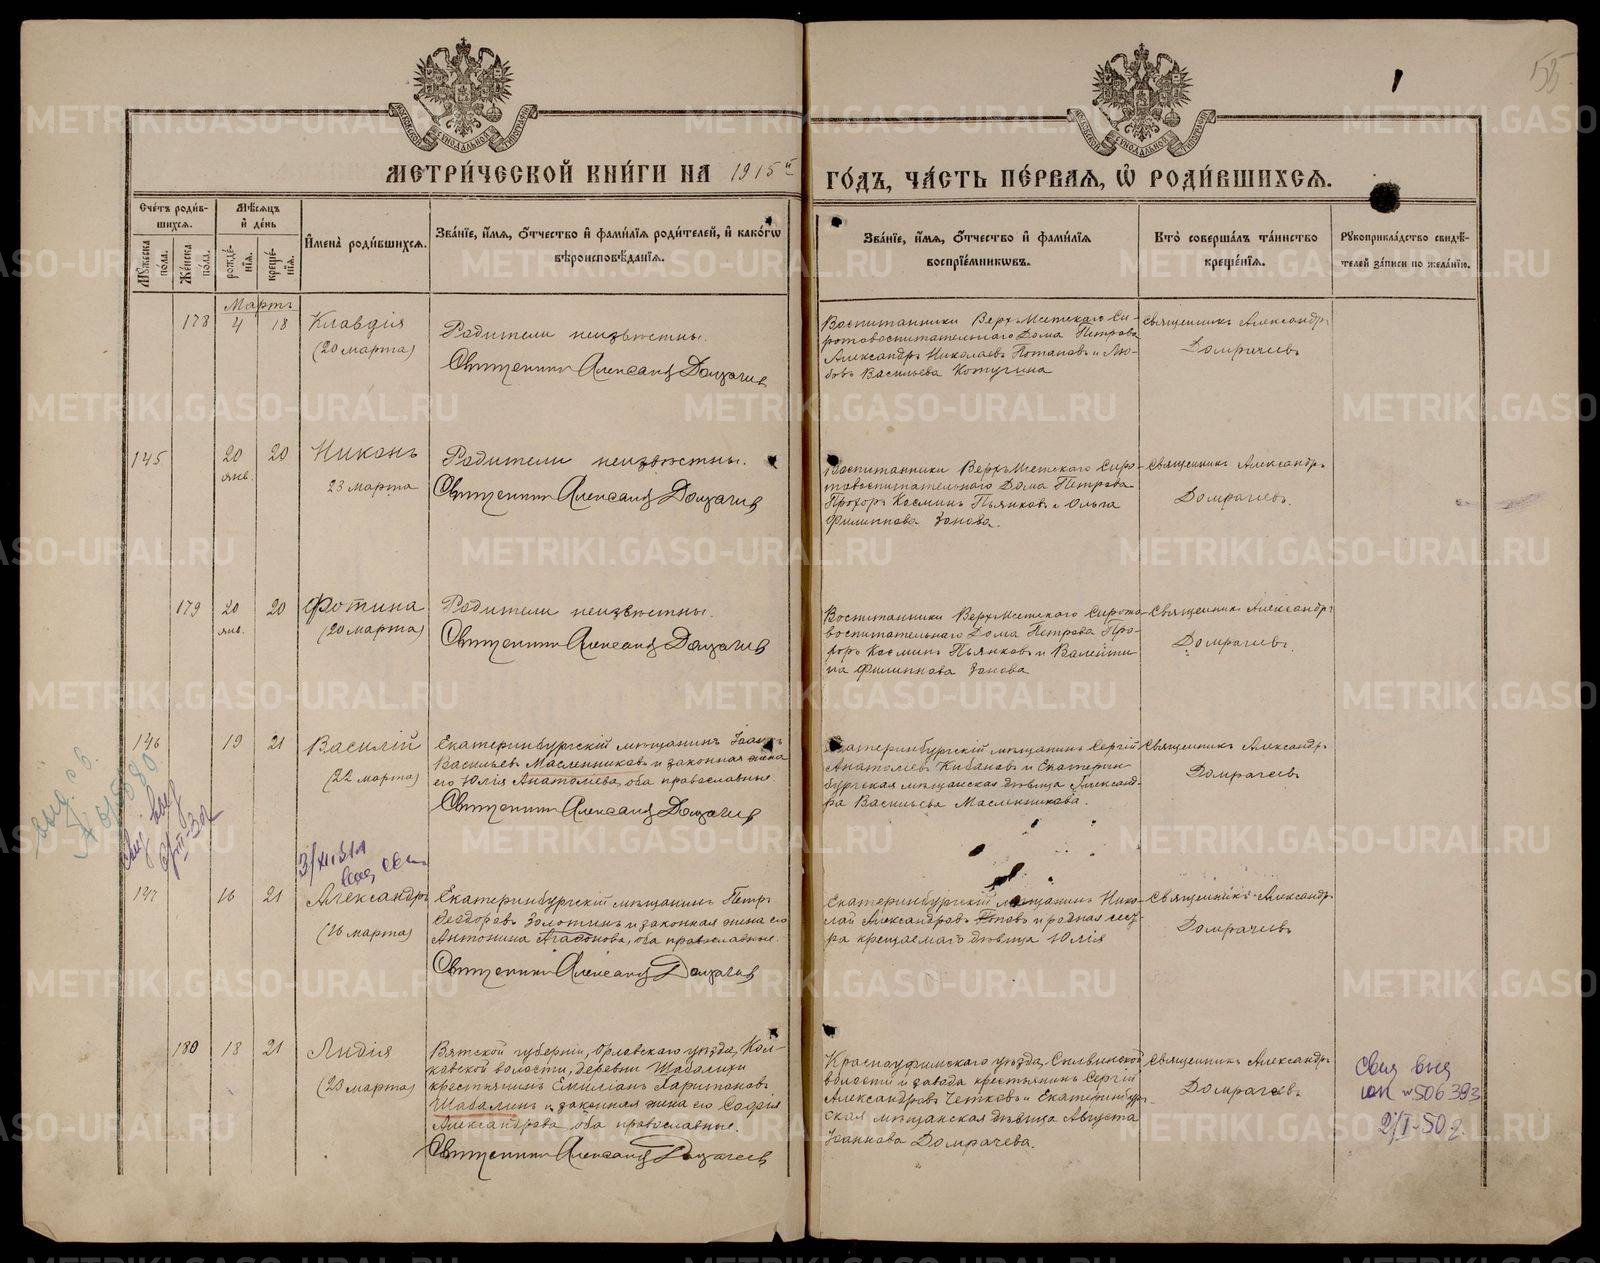 55
МЕТРИ́ЧЕСКОЙ КНИ́ГИ НА 1915й
ГО́ДЪ, ЧА́СТЬ ПЕ́РВАѦ, Ѡ РОДИ́ВШИХСѦ.
Сче́тъ роди́в-
шихся.
Мѣ́сяцъ
и҆ де́нь
Мꙋжеска по́ла.
Же́нска по́ла.
рожде́-
нїя.
креще́-
нїя.
И҆мена̀ роди́вшихся.
Зва́нїе, и҆́мя, ѻ҆́тчество и҆ фами́лїя роди́телей, и҆ како́гѡ
вѣ́роисповѣ́данїя.
Зва́нїе, и҆́мя, ѻ҆́тчество и҆ фами́лїя
воспрїе́мникѡвъ.
Кто̀ соверша́лъ та́инство
креще́нїя.
Рꙋкоприкла́дство свидѣ́-
телей за́писи по жела́нїю.
Мартъ
178 4 18 Клавдія
(20 марта)
Родители неизвѣстны.
Священникъ Александръ Домрачевъ
Воспитанники Верхъ-Исетскаго Си-
ротовоспитательнаго Дома Петрова
Александръ Николаевъ Потаповъ и Лю-
бовь Васильева Котугина
Священникъ Александръ
Домрачевъ
145 20 янв. 20 Никонъ
23 марта
Родители неизвѣстны.
Священникъ Александръ Домрачевъ
Воспитанники Верхъ-Исетскаго Сиро-
товоспитательнаго Дома Петрова
Прохоръ Косминъ Пьянковъ и Ольга
Филиппова Зонова.
Священникъ Александръ
Домрачевъ.
179 20 янв. 20 Фотина
(20 марта)
Родители неизвѣстны.
Священникъ Александръ Домрачевъ
Воспитанники Верхъ-Исетскаго Сирото-
воспитательнаго Дома Петрова Про-
хоръ Косминъ Пьянковъ и Валенти-
на Филиппова Зонова
Священникъ Александръ
Домрачевъ.
146 19 21 Василій
(22 марта)
Екатеринбургскій мѣщанинъ Іоаннъ
Васильевъ Масленниковъ и законная жена
его Юлія Анатоліева, оба православные.
Священникъ Александръ Домрачевъ
Екатеринбургскій мѣщанинъ Сергій
Анатоліевъ Кибановъ и Екатерин-
бургская мѣщанская дѣвица Александ-
ра Васильева Масленникова.
Священникъ Александръ
Домрачевъ
147 16 21 Александръ
(16 марта)
Екатеринбургскій мѣщанинъ Петръ
Ѳеодоровъ Золотинъ и законная жена его
Антонина Агафонова, оба православные.
Священникъ Александръ Домрачевъ
Екатеринбургскій мѣщанинъ Нико-
лай Александровъ и родная сест-
ра крещаемаго дѣвица Юлія
Священникъ Александръ
Домрачевъ
180 18 21 Лидія
(23 марта)
Вятской губерніи, Орловскаго уѣзда,
волости, деревни Шабалихи
крестьянинъ Емиліанъ Харитоновъ
Шабалинъ и законная жена его Софія
Александрова, оба православные.
Священникъ Александръ Домрачевъ
Красноуфимскаго уѣзда, Сылвинской
волости и завода крестьянинъ Сергій
Александровъ Четковъ и Екатеринбург-
ская мѣщанская дѣвица Августа
Іоаннова Домрачева.
Священникъ Александръ
Домрачевъ
506393
2/I-50 г.
METRIKI.GASO-URAL.RU